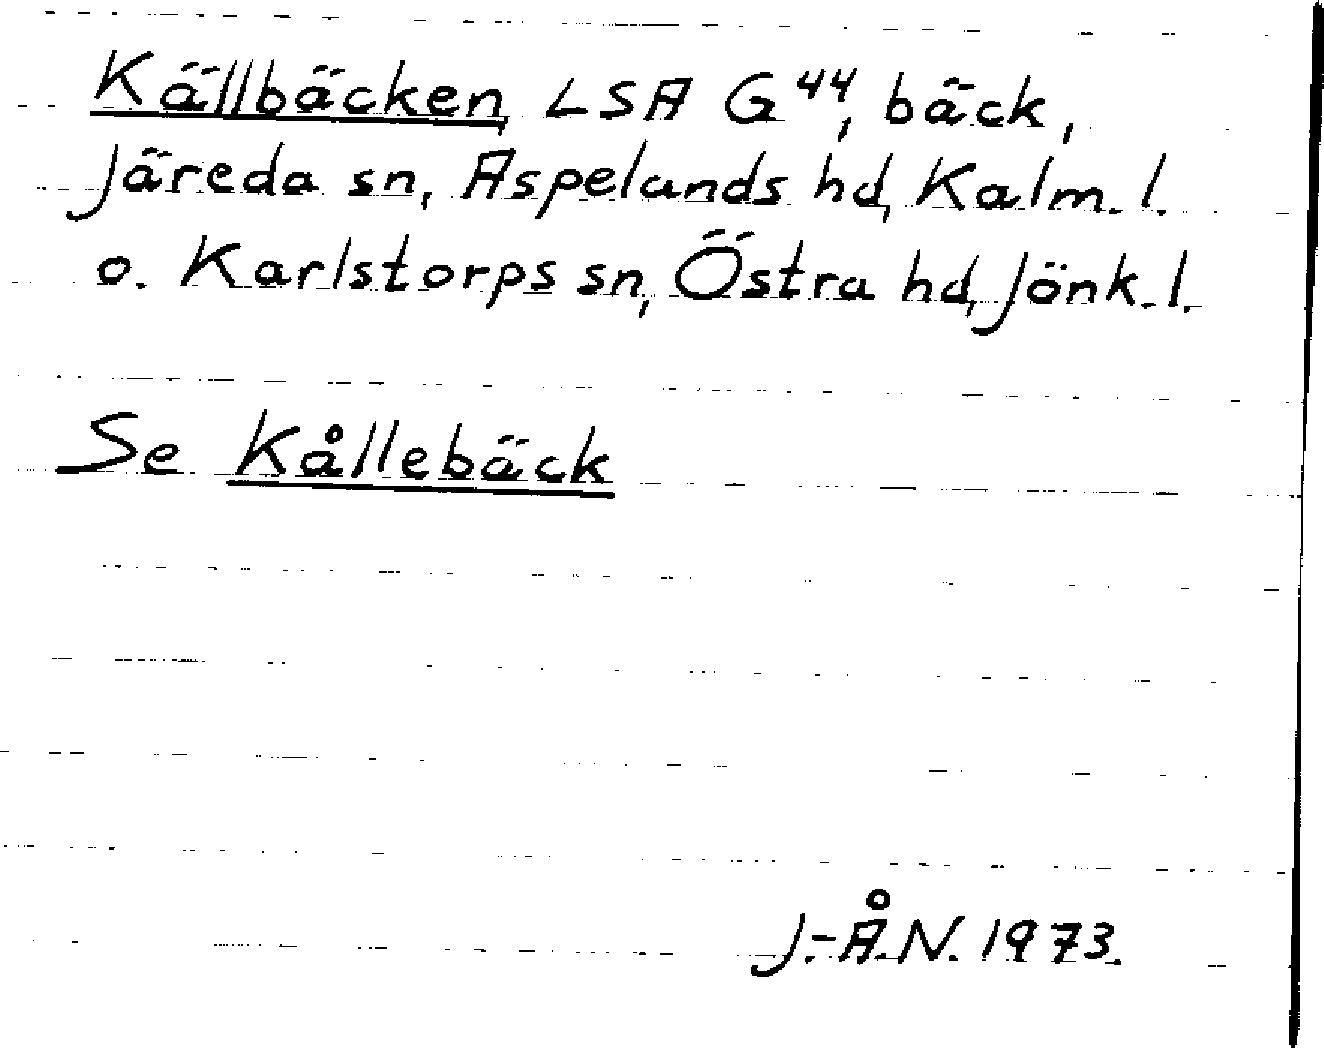 Källbäcken, LSA G⁴⁴, bäck,
Järeda sn, Aspelands hd, Kalm. l.
o. Karlstorps sn, Östra hd, Jönk. l.
Se Kållebäck
J.-Å.N. 1973.